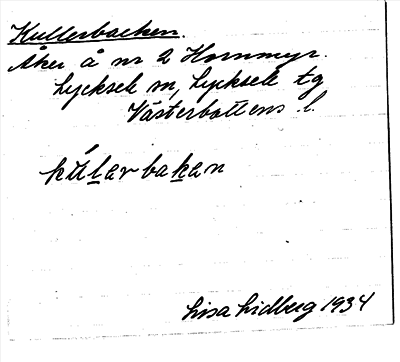 Kullerbacken.
Åker å nr 2 Hornmyr.
Lycksele sn, Lycksele tg
Västerbottens l.
kúlarbakan
Lisa Lidberg 1934